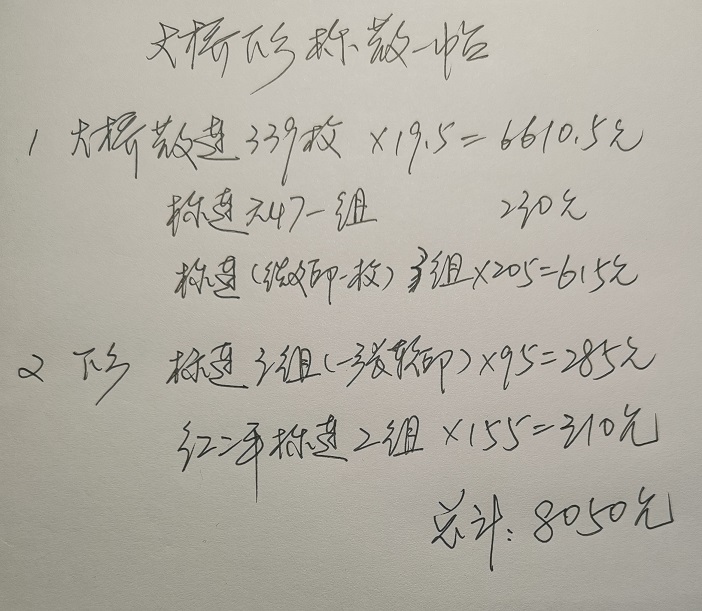 大桥下乡标散一帖
1 大桥散连 339枚 ×19.5=6610.5元
标连 47一组 230元
标连(微印一枚) 3组×205=615元
2 下乡 标连3组(一张软印)×95=285元
红二平标连2组 ×155=310元
总计:8050元